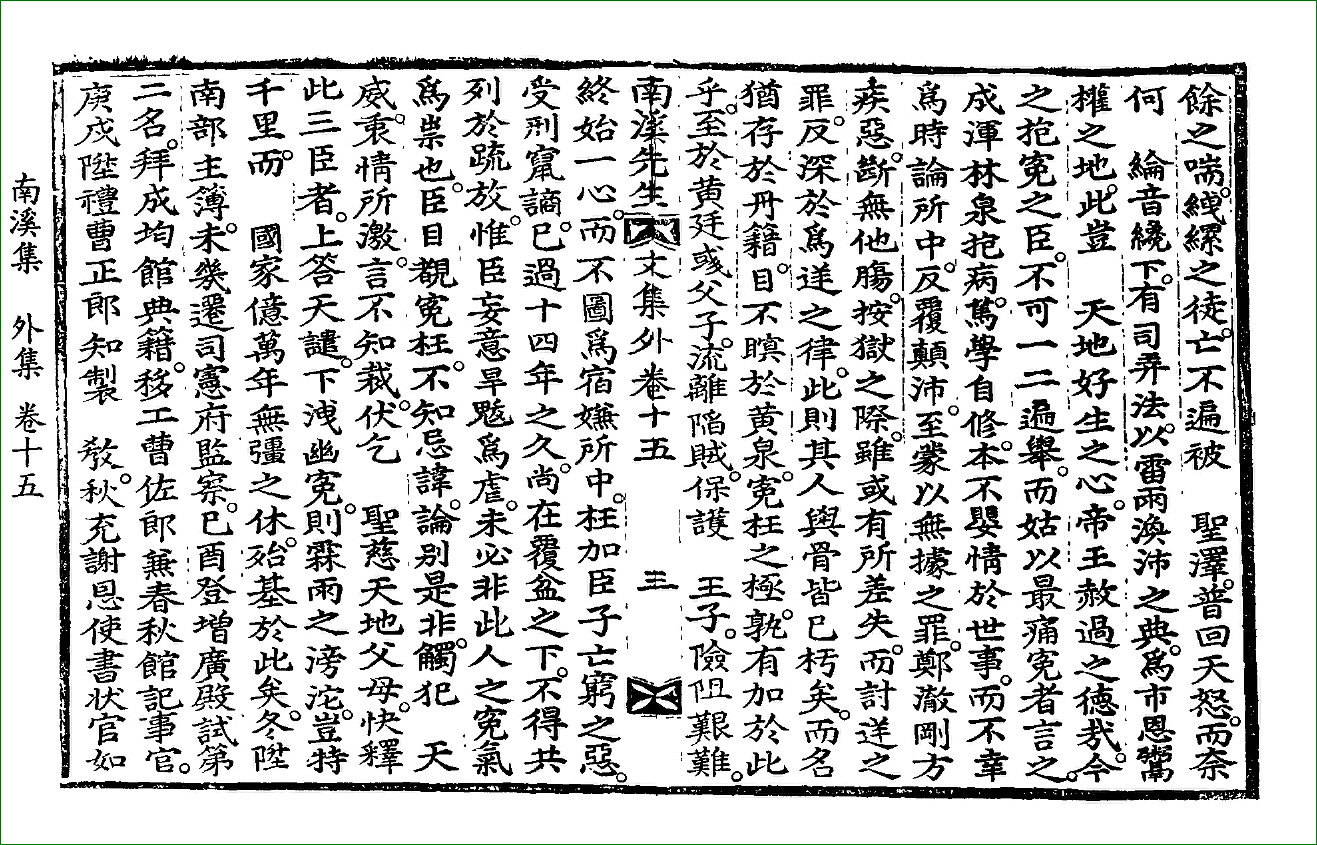 餘之喘。縲絏之徒。亡不遍被 聖澤。普回天怒。而奈
何 綸音纔下。有司弄法。以雷雨渙沛之典。爲市恩鬻
權之地。此豈 天地好生之心。帝王赦過之德哉。今
之抱寃之臣。不可一二遍擧。而姑以最痛寃者言之。
成渾林泉抱病。篤學自修。本不嬰情於世事。而不幸
爲時論所中。反覆顚沛。至蒙以無據之罪。鄭澈剛方
疾惡。斷無他膓。按獄之際。雖或有所差失。而討逆之
罪。反深於爲逆之律。此則其人與骨皆已朽矣。而名
猶存於丹籍。目不瞑於黄泉。寃枉之極。孰有加於此
乎。至於黄廷彧父子。流離陷賊。保護 王子。險阻艱難。
南溪先生文集外卷十五 三
終始一心。而不圖爲宿嫌所中。枉加臣子亡窮之惡。
受刑竄謫。已過十四年之久。尚在覆盆之下。不得共
列於疏放。惟臣妄意旱魃爲虐。未必非此人之寃氣
爲祟也。臣目覩寃枉。不知忌諱。論別是非。觸犯 天
威。秉情所激。言不知裁。伏乞 聖慈天地父母。快釋
此三臣者。上答天譴。下洩幽寃。則霖雨之滂沱。豈特
千里。而 國家億萬年無彊之休。殆基於此矣。冬。陞
南部主簿。未幾遷司憲府監察。已酉登增廣殿試第
二名。拜成均館典籍。移工曹佐郎兼春秋館記事官。
庚戍陞禮曹正郎知製 敎。秋。充謝恩使書狀官如
南溪集 外集 卷十五